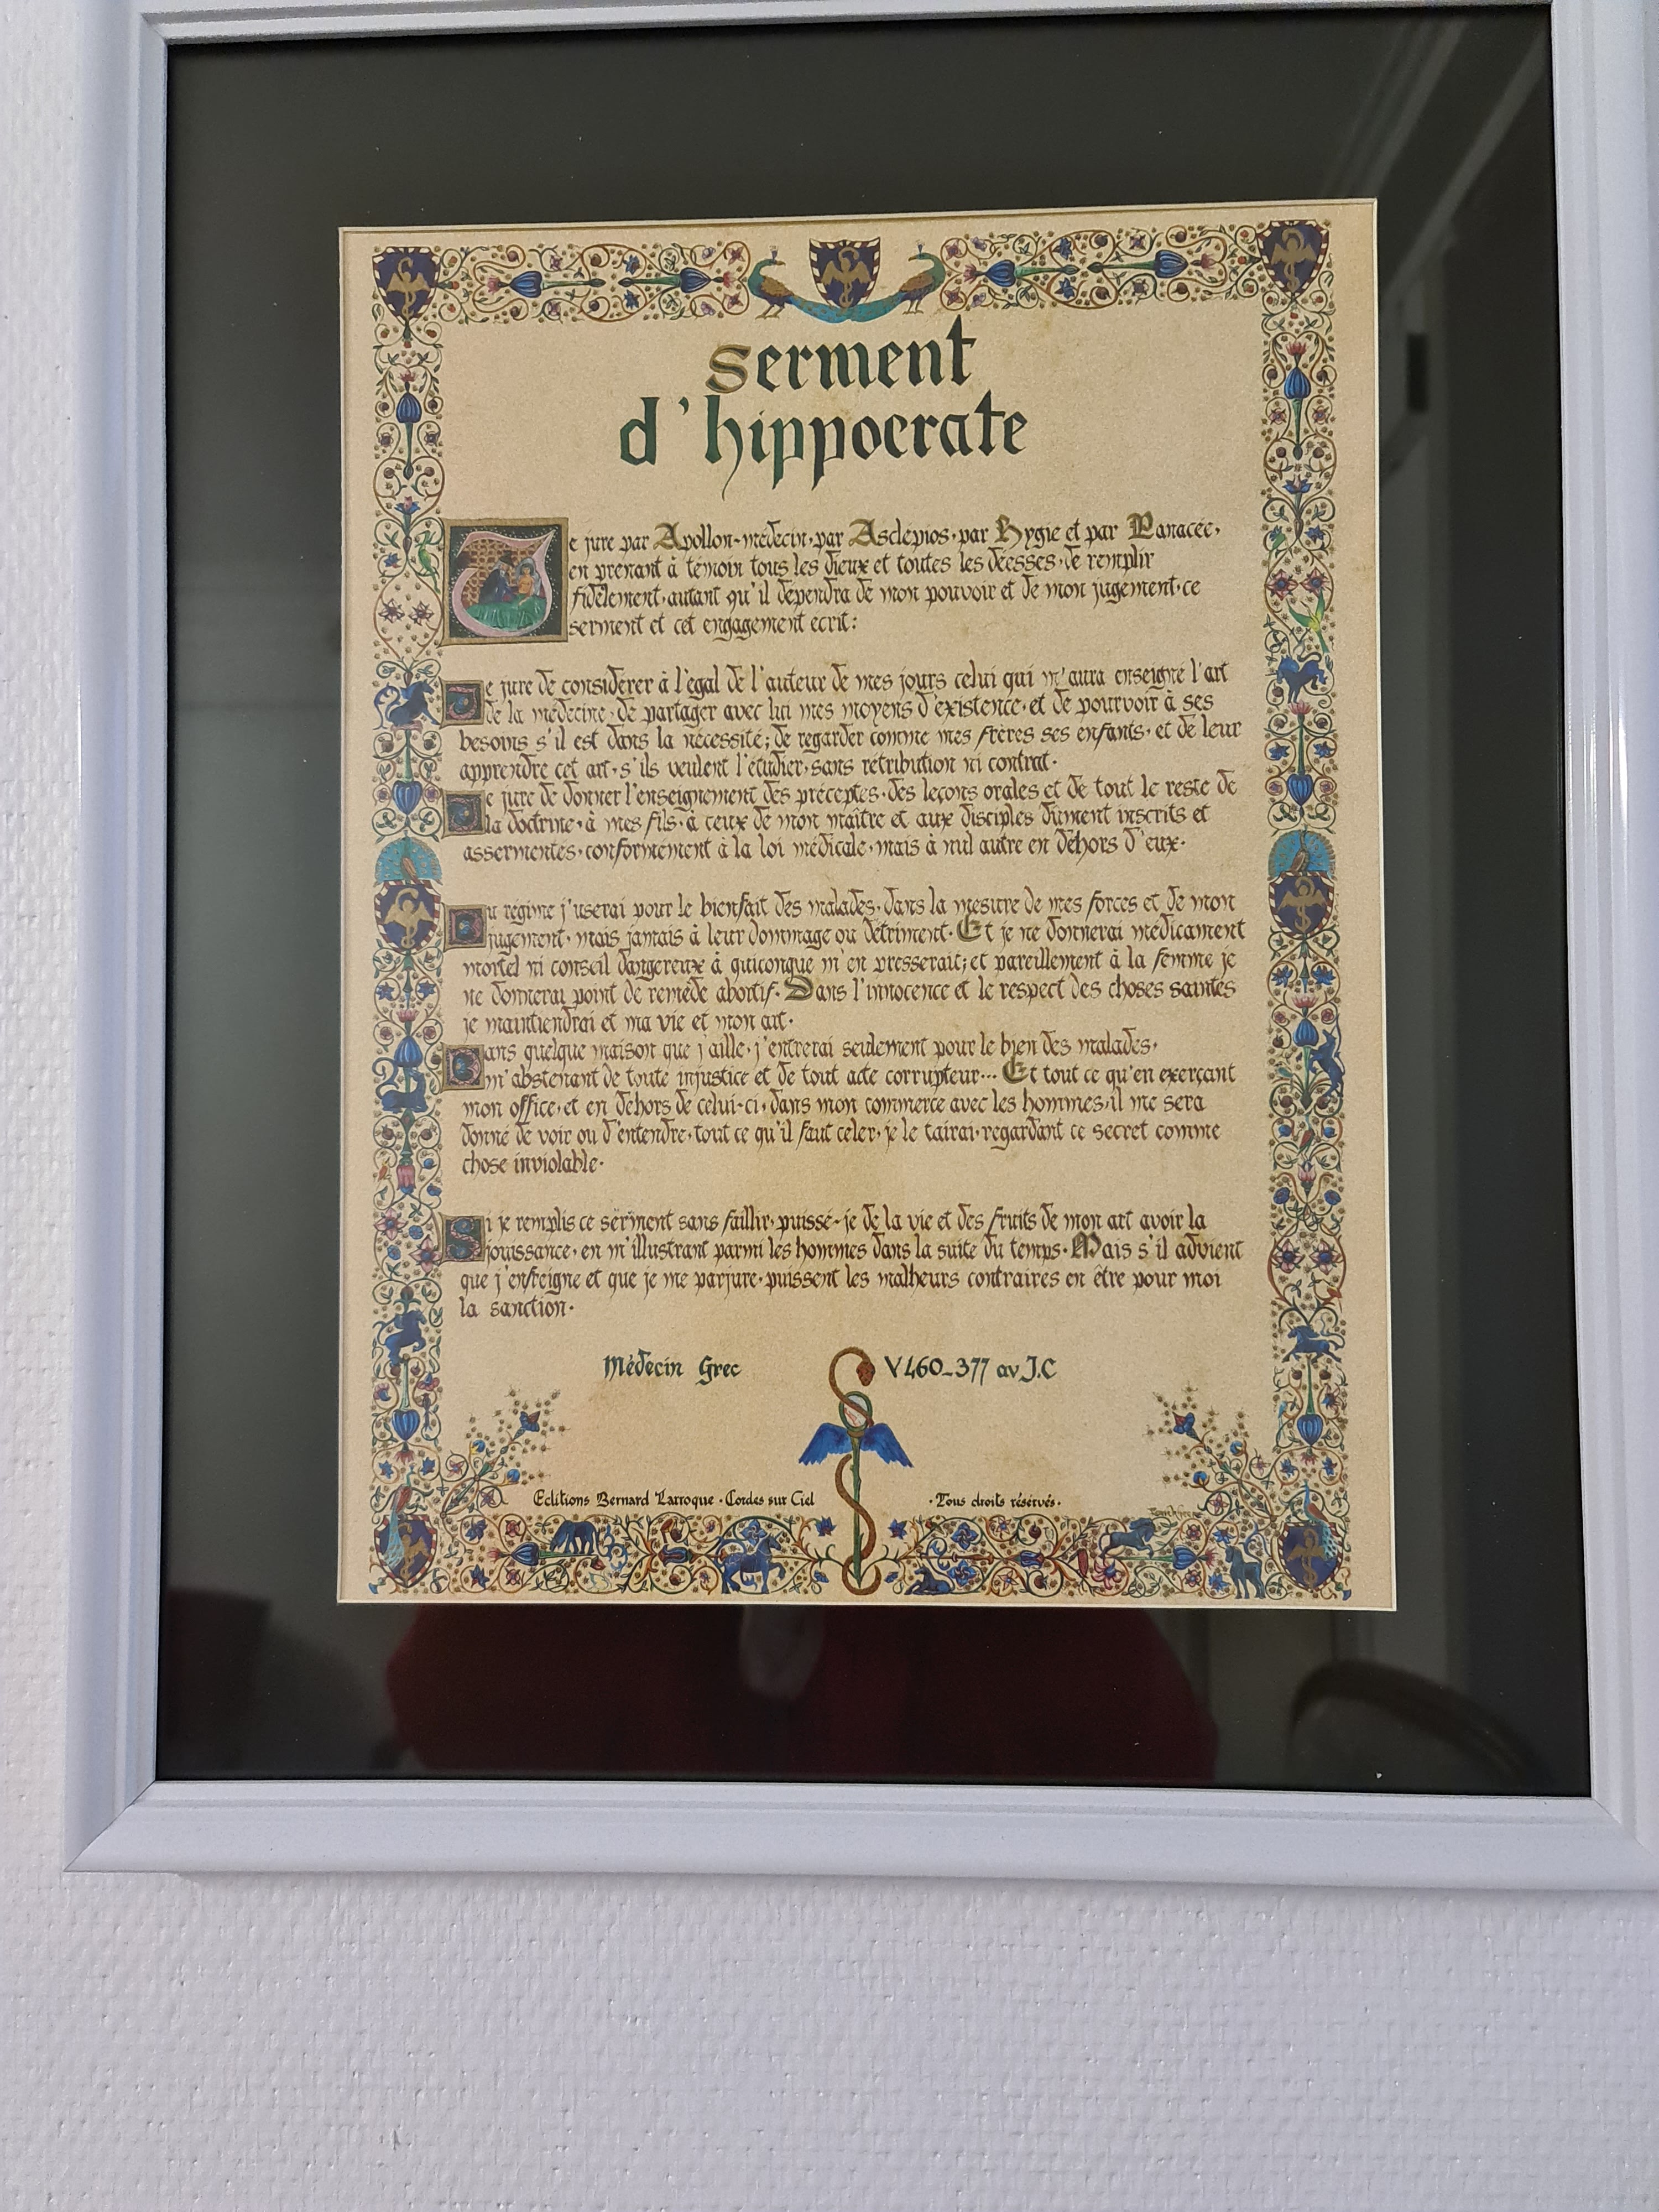 Serment
d'hippocrate
Je jure par Apollon-médecin, par Asclépios, par Hygie et par Panacée,
en prenant à témoin tous les dieux et toutes les déesses, de remplir
fidèlement, autant qu'il dépendra de mon pouvoir et de mon jugement, ce
serment et cet engagement écrit:
Je jure de considérer à l'égal de l'auteur de mes jours celui qui m'aura enseigné l'art
de la médecine, de partager avec lui mes moyens d'existence, et de pourvoir à ses
besoins s'il est dans la nécessité; de regarder comme mes frères ses enfants, et de leur
apprendre cet art, s'ils veulent l'étudier, sans rétribution ni contrat.
Je jure de donner l'enseignement des préceptes, des leçons orales et de tout le reste de
la doctrine, à mes fils, à ceux de mon maître et aux disciples dûment inscrits et
assermentés, conformément à la loi médicale, mais à nul autre en dehors d'eux.
Du régime j'userai pour le bienfait des malades, dans la mesure de mes forces et de mon
jugement, mais jamais à leur dommage ou détriment. Et je ne donnerai médicament
mortel ni conseil dangereux à quiconque m'en presserait; et pareillement à la femme je
ne donnerai point de remède abortif. Dans l'innocence et le respect des choses saintes
je maintiendrai et ma vie et mon art.
Dans quelque maison que j'aille, j'entrerai seulement pour le bien des malades,
m'abstenant de toute injustice et de tout acte corrupteur... Et tout ce qu'en exerçant
mon office, et en dehors de celui-ci, dans mon commerce avec les hommes, il me sera
donné de voir ou d'entendre, tout ce qu'il faut celer, je le tairai, regardant ce secret comme
chose inviolable.
Si je remplis ce serment sans faillir, puissé-je de la vie et des fruits de mon art avoir la
jouissance, en m'illustrant parmi les hommes dans la suite du temps. Mais s'il advient
que j'enfreigne et que je me parjure, puissent les malheurs contraires en être pour moi
la sanction.
Médecin Grec V 460-377 av J.C
Editions Bernard Larroque . Cordes sur Ciel . Tous droits réservés.